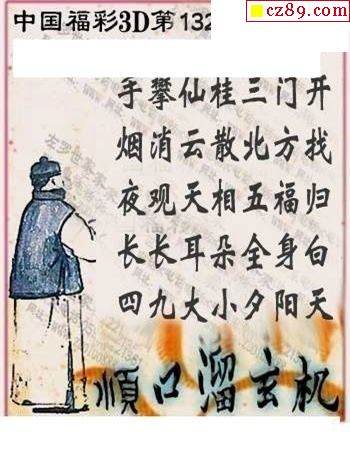 cz89.com
中国福彩3D第132
手攀仙桂三门开
烟消云散北方找
夜观天相五福归
长长耳朵全身白
四九大小夕阳天
顺口溜玄机